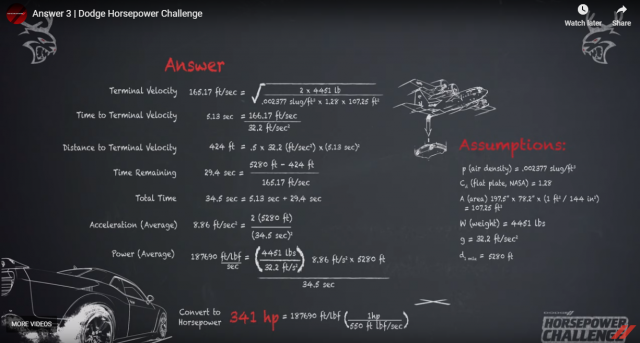 Answer 3 | Dodge Horsepower Challenge
Watch later
Share
Answer
Terminal Velocity 165.17 ft/sec = √ 2 x 4451 lb / .002377 slug/ft³ x 1.28 x 107.25 ft²
Time to Terminal Velocity 5.13 sec = 166.17 ft/sec / 32.2 ft/sec²
Distance to Terminal Velocity 424 ft = .5 x 32.2 (ft/sec²) x (5.13 sec)²
Time Remaining 29.4 sec = 5280 ft - 424 ft / 165.17 ft/sec
Total Time 34.5 sec = 5.13 sec + 29.4 sec
Acceleration (Average) 8.86 ft/sec² = 2 (5280 ft) / (34.5 sec)²
Power (Average) 187690 ft/lbf / sec = (4451 lbs / 32.2 ft/s²) 8.86 ft/s² x 5280 ft / 34.5 sec
Convert to Horsepower 341 hp = 187690 ft/lbf (1hp / 550 ft lbf/sec)
Assumptions:
p (air density) = .002377 slug/ft³
(flat plate, NASA) = 1.28
A (area) 197.5" x 78.2" x (1 ft² / 144 in²)
= 107.25 ft²
W (weight) = 4451 lbs
g = 32.2 ft/sec²
d, mile = 5280 ft
MORE VIDEOS
HORSEPOWER
CHALLENGE